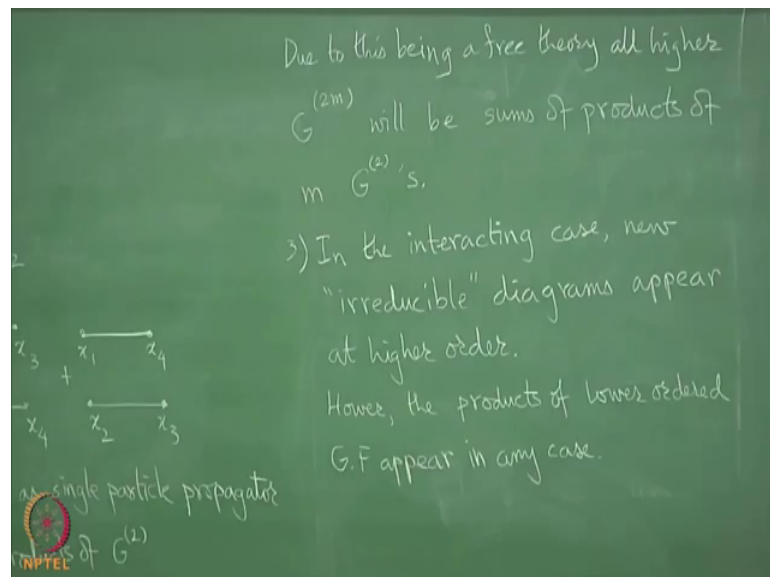 Due to this being a free theory all higher
G^(2m) will be sums of products of
m G^(2)'s.
3) In the interacting case, new
"irreducible" diagrams appear
at higher order.
Hower, the products of lower ordered
G.F appear in any case.
x3 + x1 x4
x4 x2 x3
as single particle propagator
of G^(2)
NPTEL